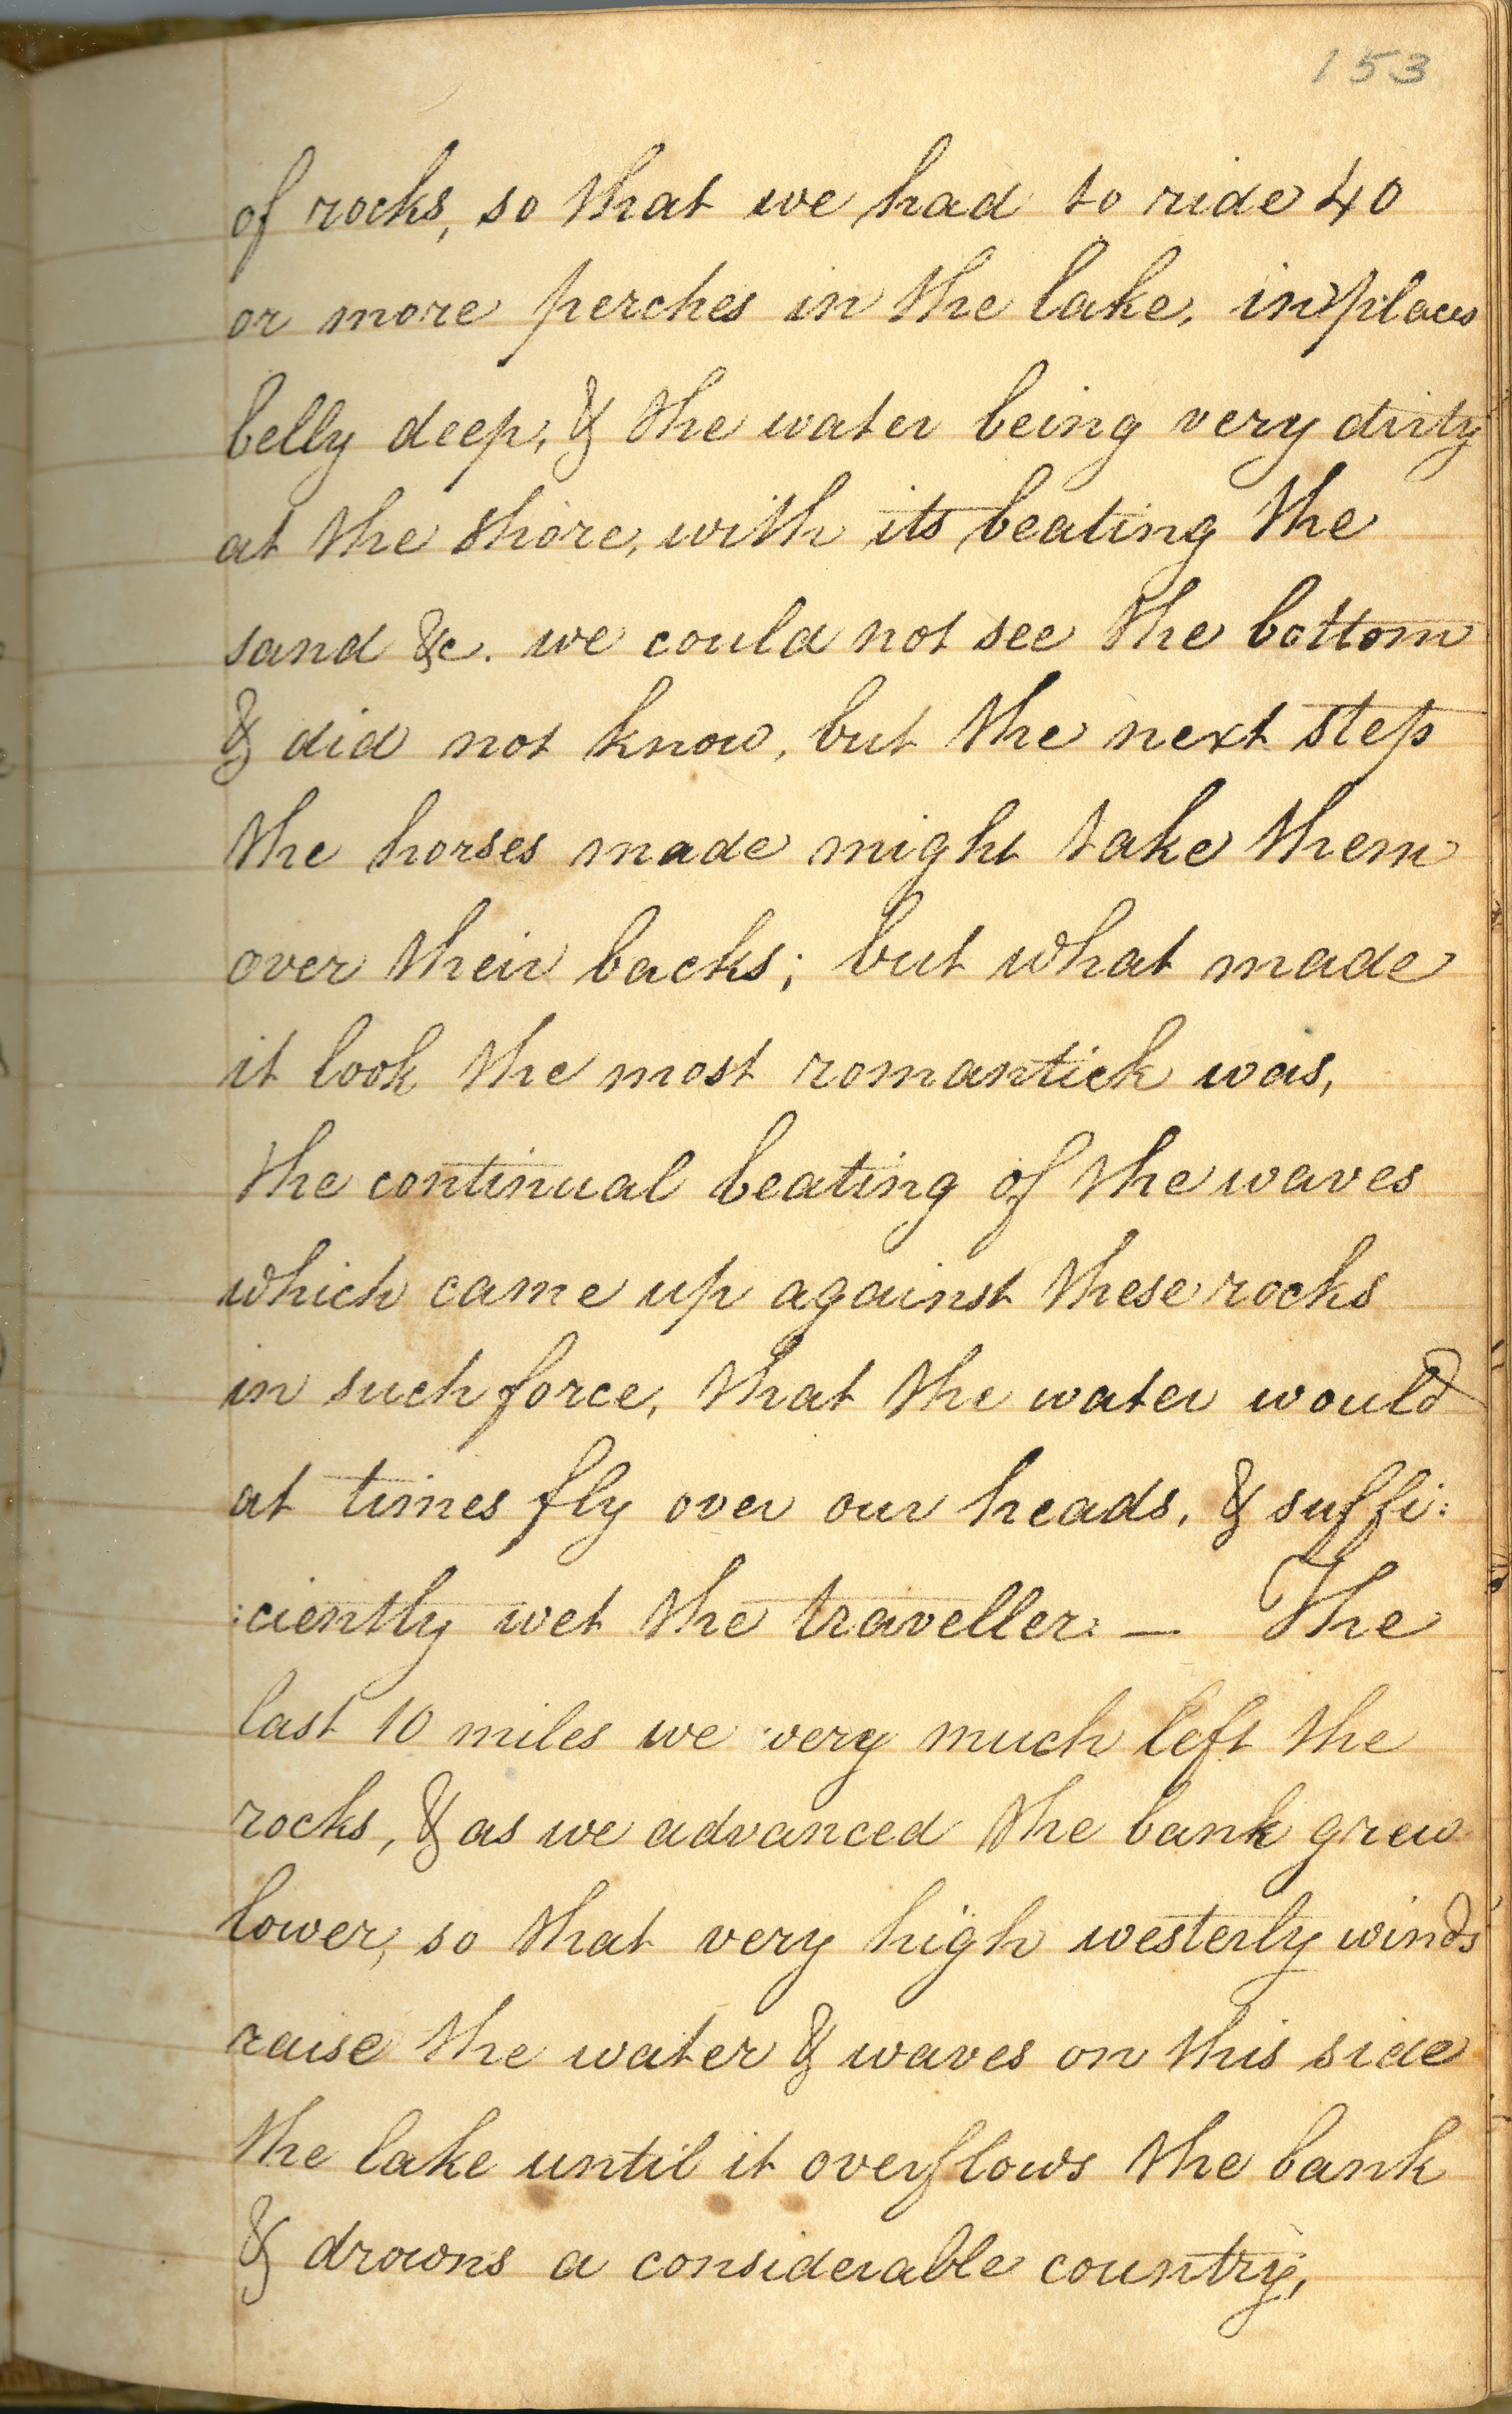 153
of rocks, so that we had to ride 40
or more perches in the lake, in places
belly deep, & the water being very dirty
at the shore, with its beating the
sand &c. we could not see the bottom
& did not know, but the next step
the horses made might take them
over their backs; but what made
it look the most romantick was,
the continual beating of the waves
which came up against these rocks
in such force, that the water would
at times fly over our heads, & suffi:
:ciently wet the traveller: — The
last 10 miles we very much left the
rocks, & as we advanced the bank grew
lower, so that very high westerly winds
raise the water & waves on this side
the lake until it overflows the bank
& drowns a considerable country,